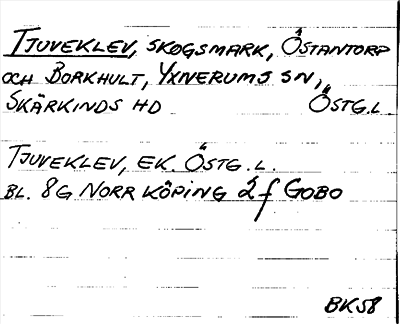 TJUVEKLEV, SKOGSMARK, ÖSTANTORP
OCH BORKHULT, YXNERUMS SN,
SKÄRKINDS HD ÖSTG.L.
TJUVEKLEV, EK. ÖSTG.L.
BL. 8G NORRKÖPING 2f GOBO
BK58